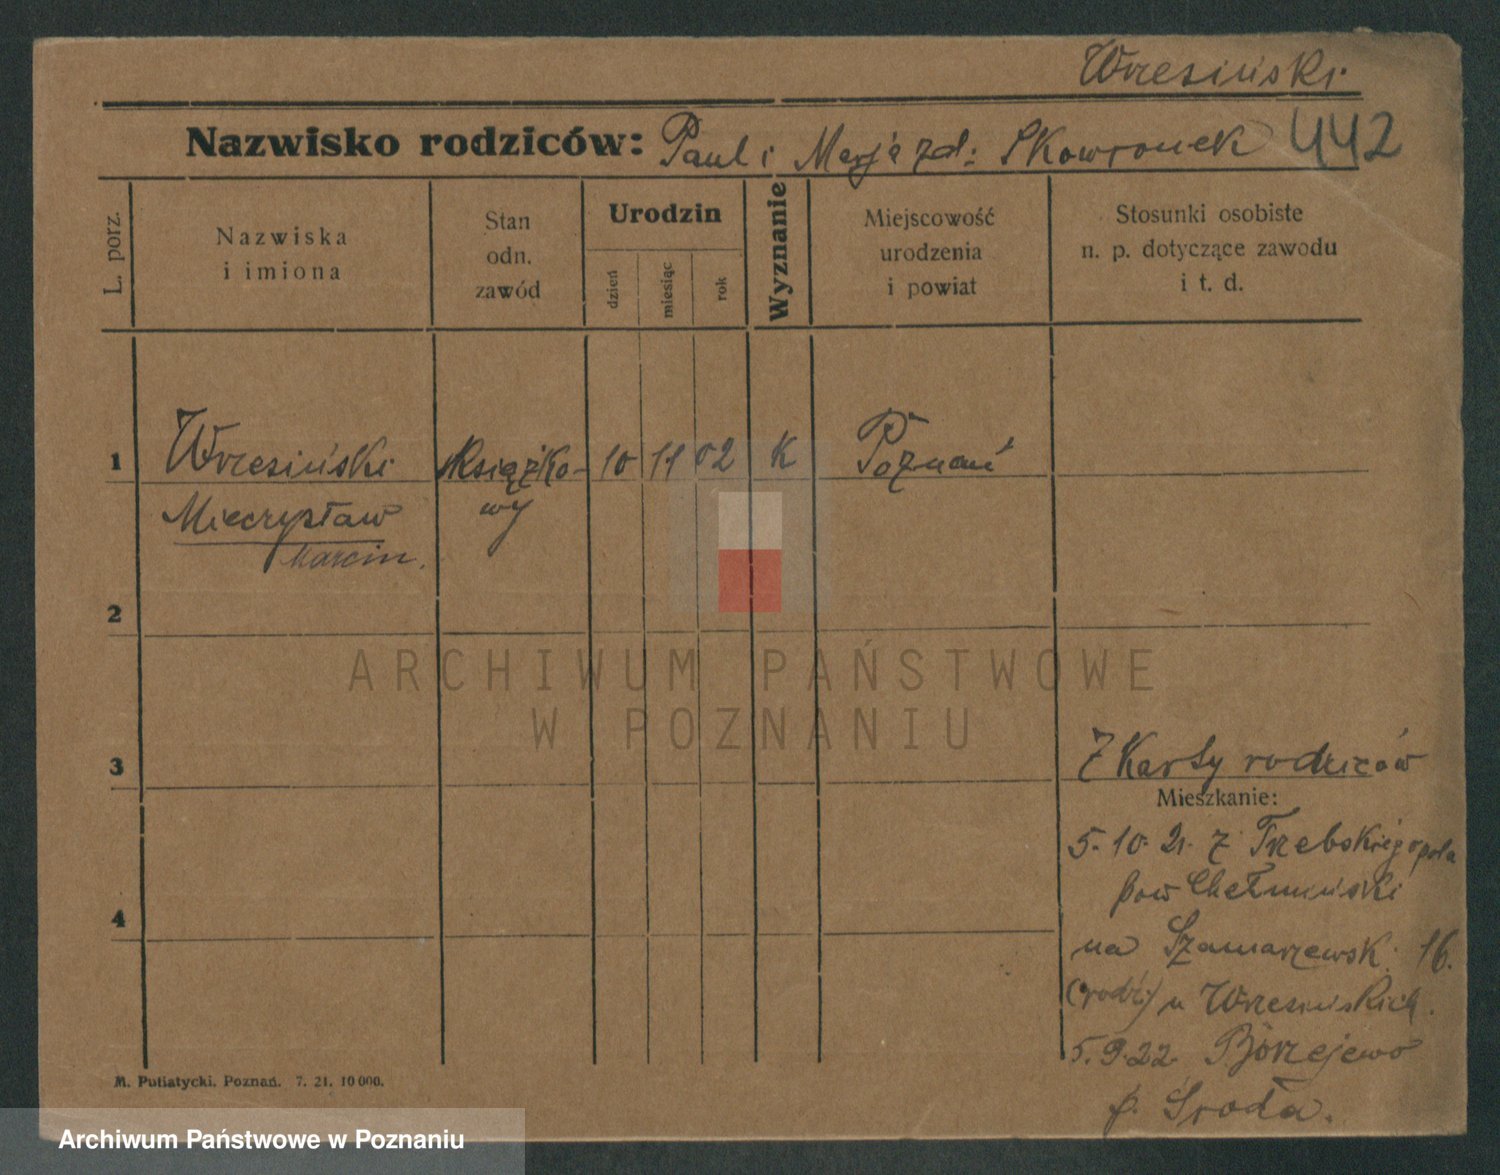 Wrzesiński.
Nazwisko rodziców: Paul i Marja zd: Skowronek 442
L. porz.
Nazwiska
i imiona
Stan
odn.
zawód
Urodzin
dzień
miesiąc
rok
Wyznanie
Miejscowość
urodzenia
i powiat
Stosunki osobiste
n. p. dotyczące zawodu
i t. d.
1 Wrzesiński Książko- 10 11 02 K Poznań
Mieczysław wy
Marcin.
2
3 Z Karty rodziców
Mieszkanie:
5. 10. 21. z Trzebskiego pola
pow Chełmiński
4
na Szamarzewsk. 16.
(rodz.) u Wrzesińskich.
5. 9. 22. Borzejewo
p. Środa.
M. Putiatycki, Poznań. 7. 21. 10 000.
ARCHIWUM PAŃSTWOWE
W POZNANIU
Archiwum Państwowe w Poznaniu